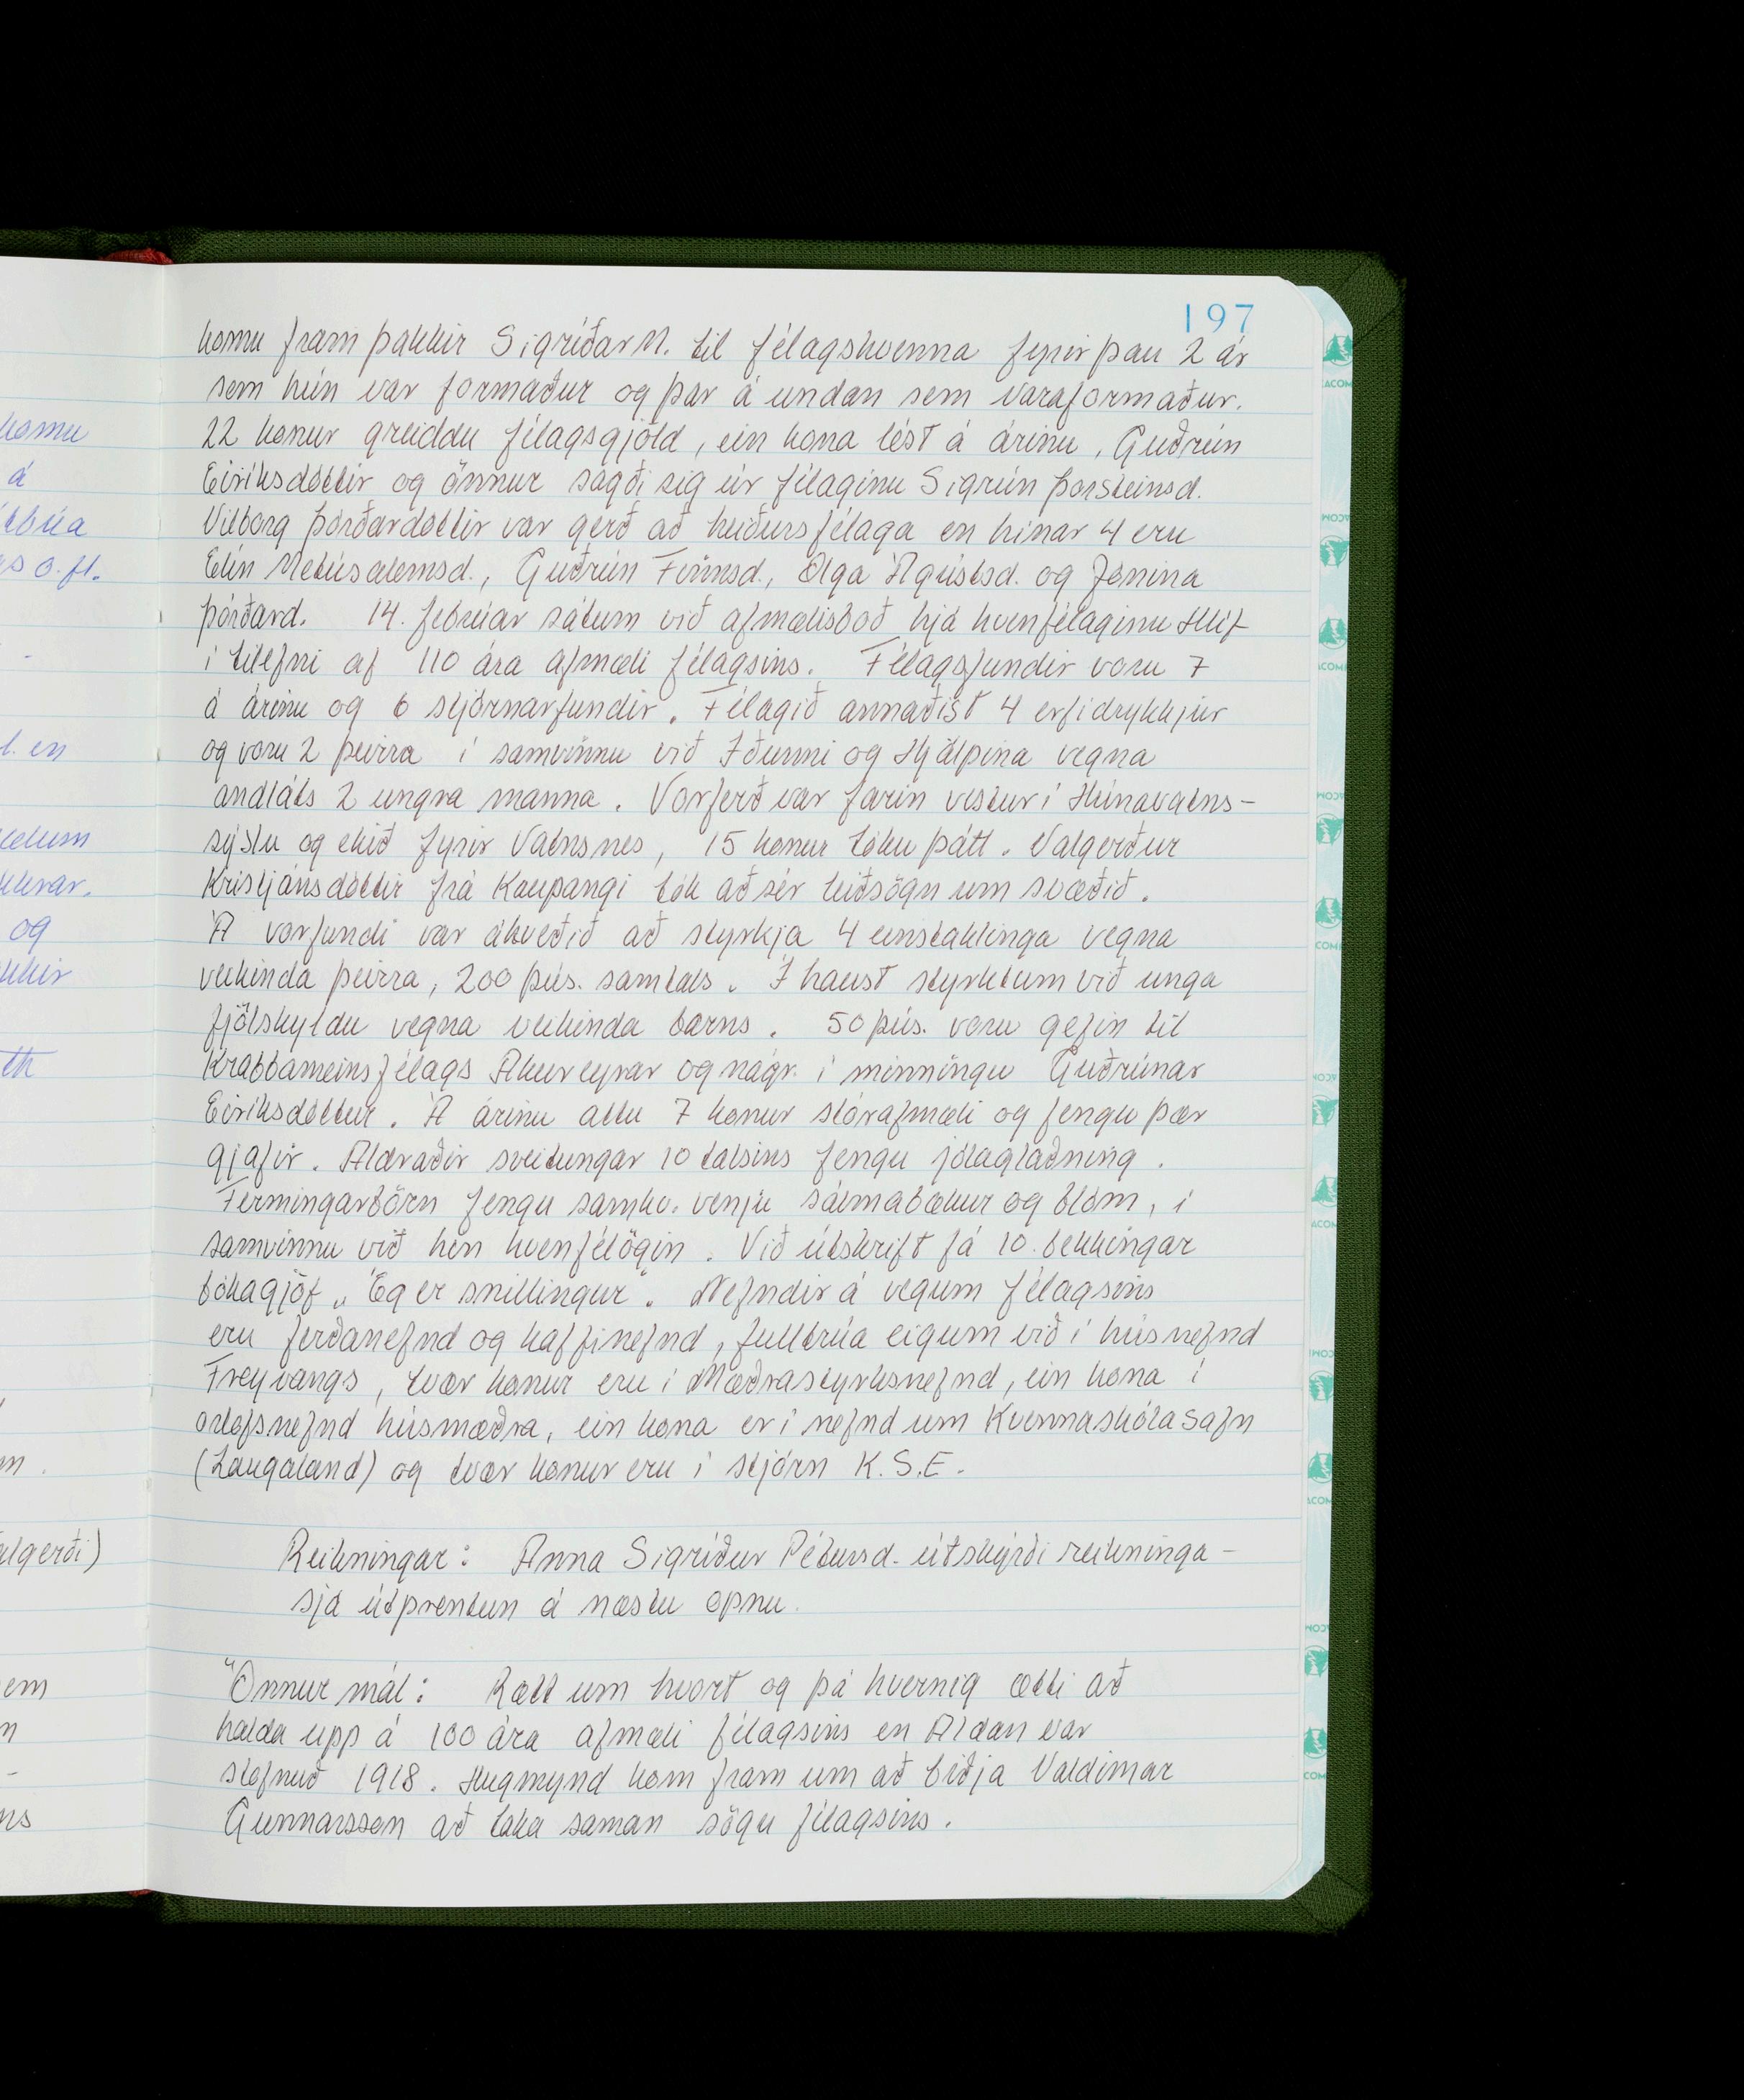 197
komu fram þakkir Sigríðar M. til félagskvenna fyrir þau 2 ár
sem hún var formaður og þar á undan sem varaformaður.
22 konur greiddu félagsgjöld, ein kona lést á árinu, Guðrún
Eiríksdóttir og önnur sagði sig úr félaginu Sigrún Þorsteinsd.
Vilborg Þórðardóttir var gerð að heiðursfélaga en hinar 4 eru
Elín Metúsalemsd., Guðrún Finnsd., Olga Ágústsd. og Jónína
Þórðard. 14. febrúar sátum við afmælisboð hjá kvenfélaginu Hlíf
í tilefni af 110 ára afmæli félagsins. Félagsfundir voru 7
á árinu og 6 stjórnarfundir. Félagið annaðist 4 erfidrykkjur
og voru 2 þeirra í samvinnu við Iðunni og Hjálpina vegna
andláts 2 ungra manna. Vorferð var farin vestur í Húnavatns-
sýslu og ekið fyrir Vatnsnes, 15 konur tóku þátt. Valgerður
Kristjánsdóttir frá Kaupangi tók að sér leiðsögn um svæðið.
Á vorfundi var ákveðið að styrkja 4 einstaklinga vegna
veikinda þeirra, 200 þús. samtals. Í haust styrktum við unga
fjölskyldu vegna veikinda barns. 50 þús. voru gefin til
Krabbameinsfélags Akureyrar og nágr. í minningu Guðrúnar
Eiríksdóttur. Á árinu áttu 7 konur stórafmæli og fengu þær
gjafir. Aldraðir sveitungar 10 talsins fengu jólaglaðning.
Fermingarbörn fengu samkv. venju sálmabækur og blóm, í
samvinnu við hin kvenfélögin. Við útskrift fá 10. bekkingar
bókagjöf „Ég er snillingur“. Nefndir á vegum félagsins
eru ferðanefnd og kaffinefnd, fulltrúa eigum við í húsnefnd
Freyvangs, tvær konur eru í Mæðrastyrksnefnd, ein kona í
orlofsnefnd húsmæðra, ein kona er í nefnd um Kvennaskólasafn
(Laugaland) og tvær konur eru í stjórn K.S.E.
Reikningar: Anna Sigríður Pétursd. útskýrði reikninga -
sjá útprentun á næstu opnu.
Önnur mál: Rætt um hvort og þá hvernig ætti að
halda upp á 100 ára afmæli félagsins en Aldan var
stofnuð 1918. Hugmynd kom fram um að biðja Valdimar
Gunnarsson að taka saman sögu félagsins.